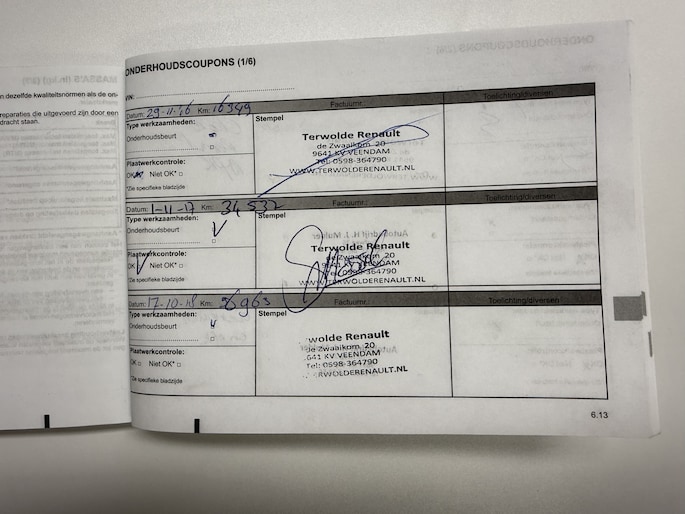 n dezelfde kwaliteitsnormen als de on-
reparaties die uitgevoerd zijn door een
dracht staan.
ONDERHOUDSCOUPONS (1/6)
VIN:
Datum: 29-11-16 Km: 16349 Factuurnr.: Toelichting/diversen
Type werkzaamheden:
Onderhoudsbeurt
Plaatwerkcontrole:
OK Niet OK*
*Zie specifieke bladzijde
Stempel
Terwolde Renault
de Zwaaikom 20
9641 KV VEENDAM
Tel: 0598-364790
WWW.TERWOLDERENAULT.NL
Datum: 1-11-17 Km: 34532 Factuurnr.: Toelichting/diversen
Type werkzaamheden:
Onderhoudsbeurt
Plaatwerkcontrole:
OK Niet OK*
*Zie specifieke bladzijde
Stempel
Terwolde Renault
de Zwaaikom 20
9641 KV VEENDAM
Tel: 0598-364790
WWW.TERWOLDERENAULT.NL
Datum: 17-10-18 Km: 56963 Factuurnr.: Toelichting/diversen
Type werkzaamheden:
Onderhoudsbeurt
Plaatwerkcontrole:
OK Niet OK*
*Zie specifieke bladzijde
Stempel
rwolde Renault
de Zwaaikom 20
641 KV VEENDAM
Tel: 0598-364790
RWOLDERENAULT.NL
6.13